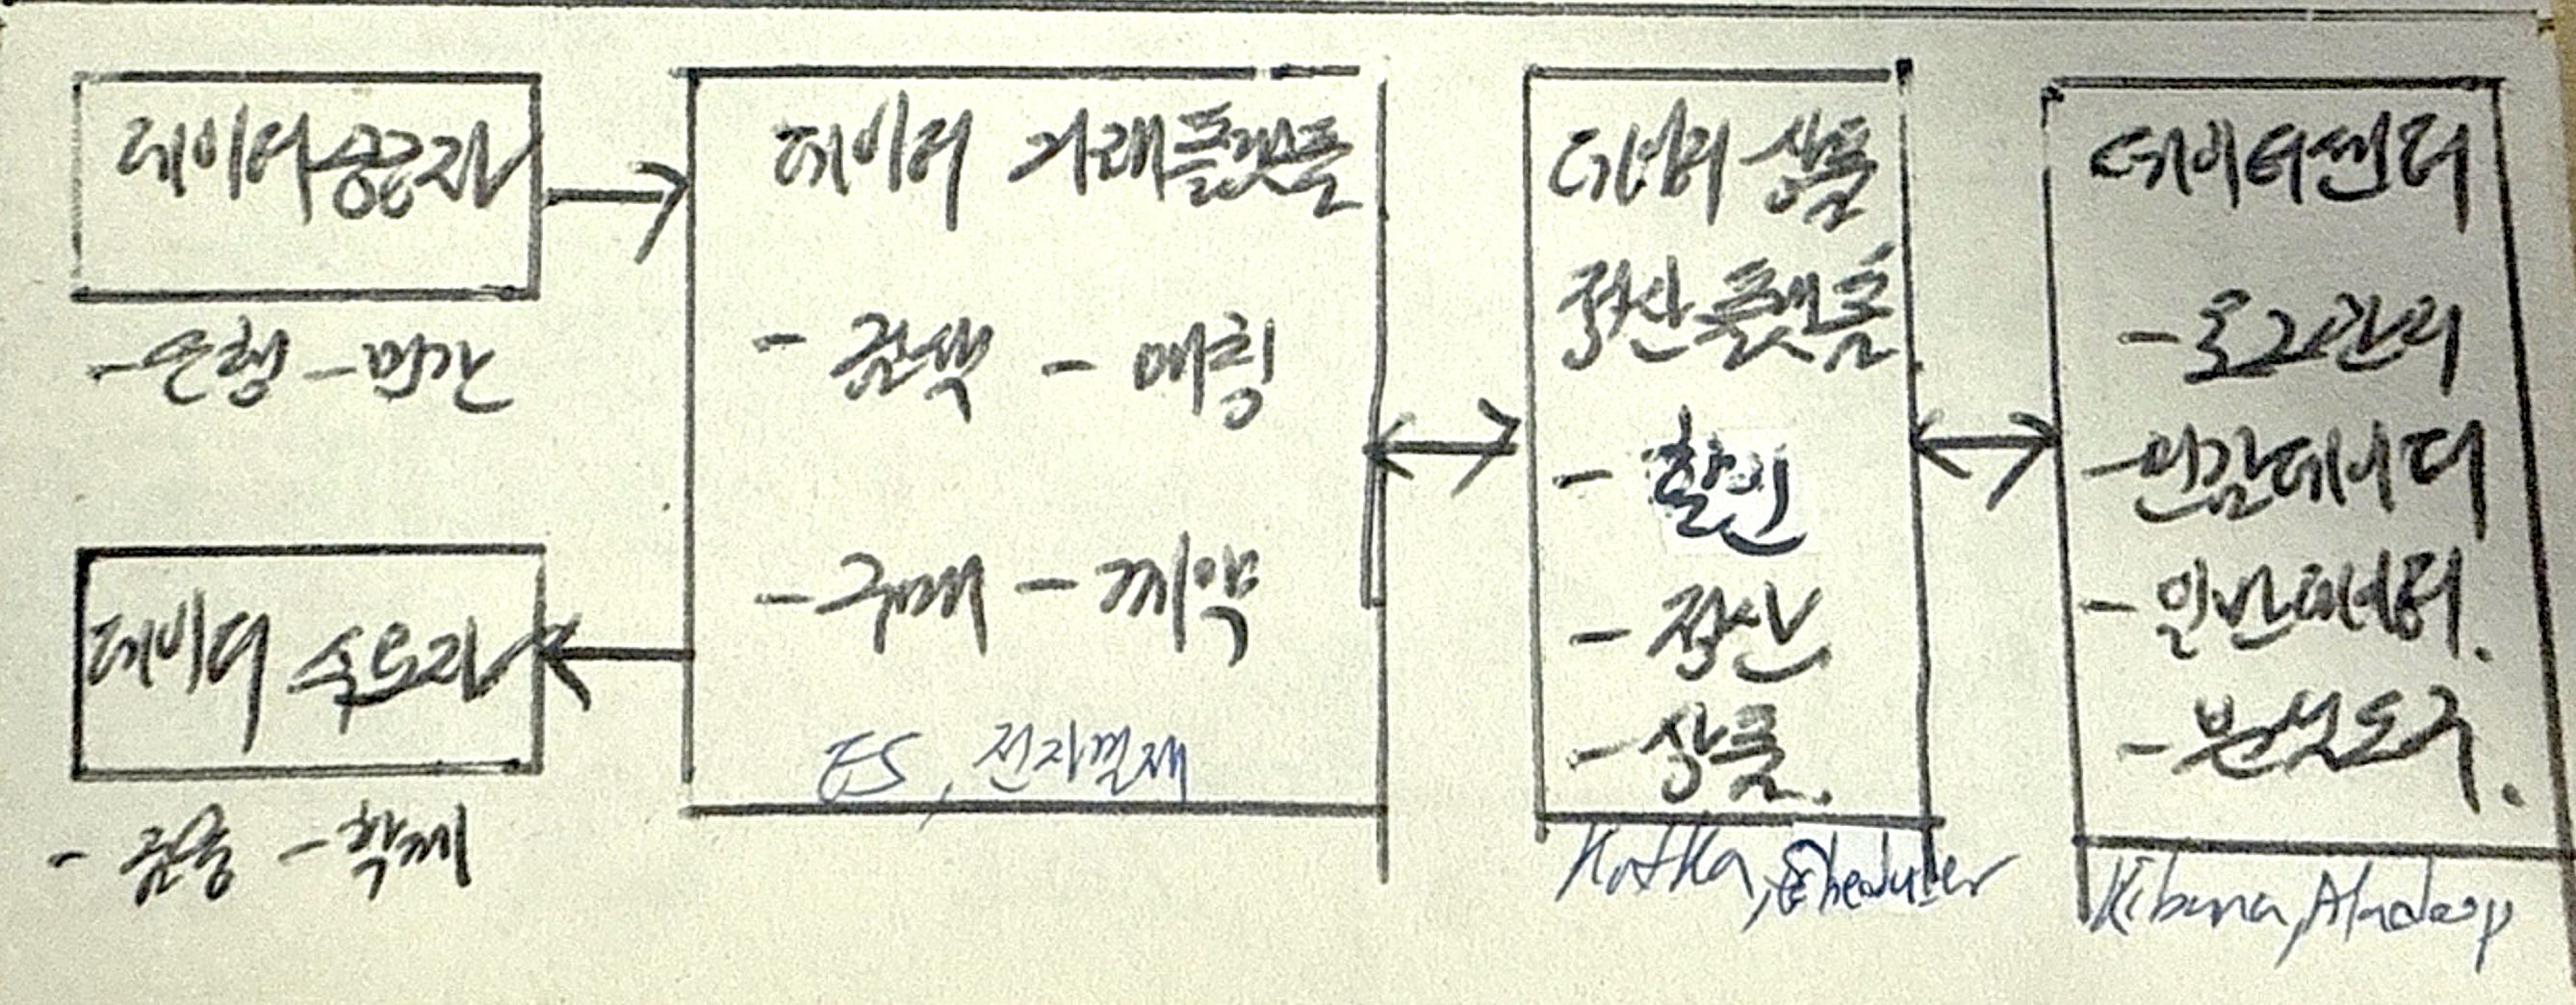 데이터 공급자
- 은행 - 민간
데이터 수요자
- 금융 - 학계
데이터 거래플랫폼
- 검색 - 매칭
- 구매 - 계약
ES, 전자결재
데이터 상품
정산플랫폼
- 할인
- 정산
- 상품.
Kafka, Scheduler
데이터센터
- 로그관리
- 민감데이터
- 일반데이터.
- 분석도구.
Kibana, Hadoop